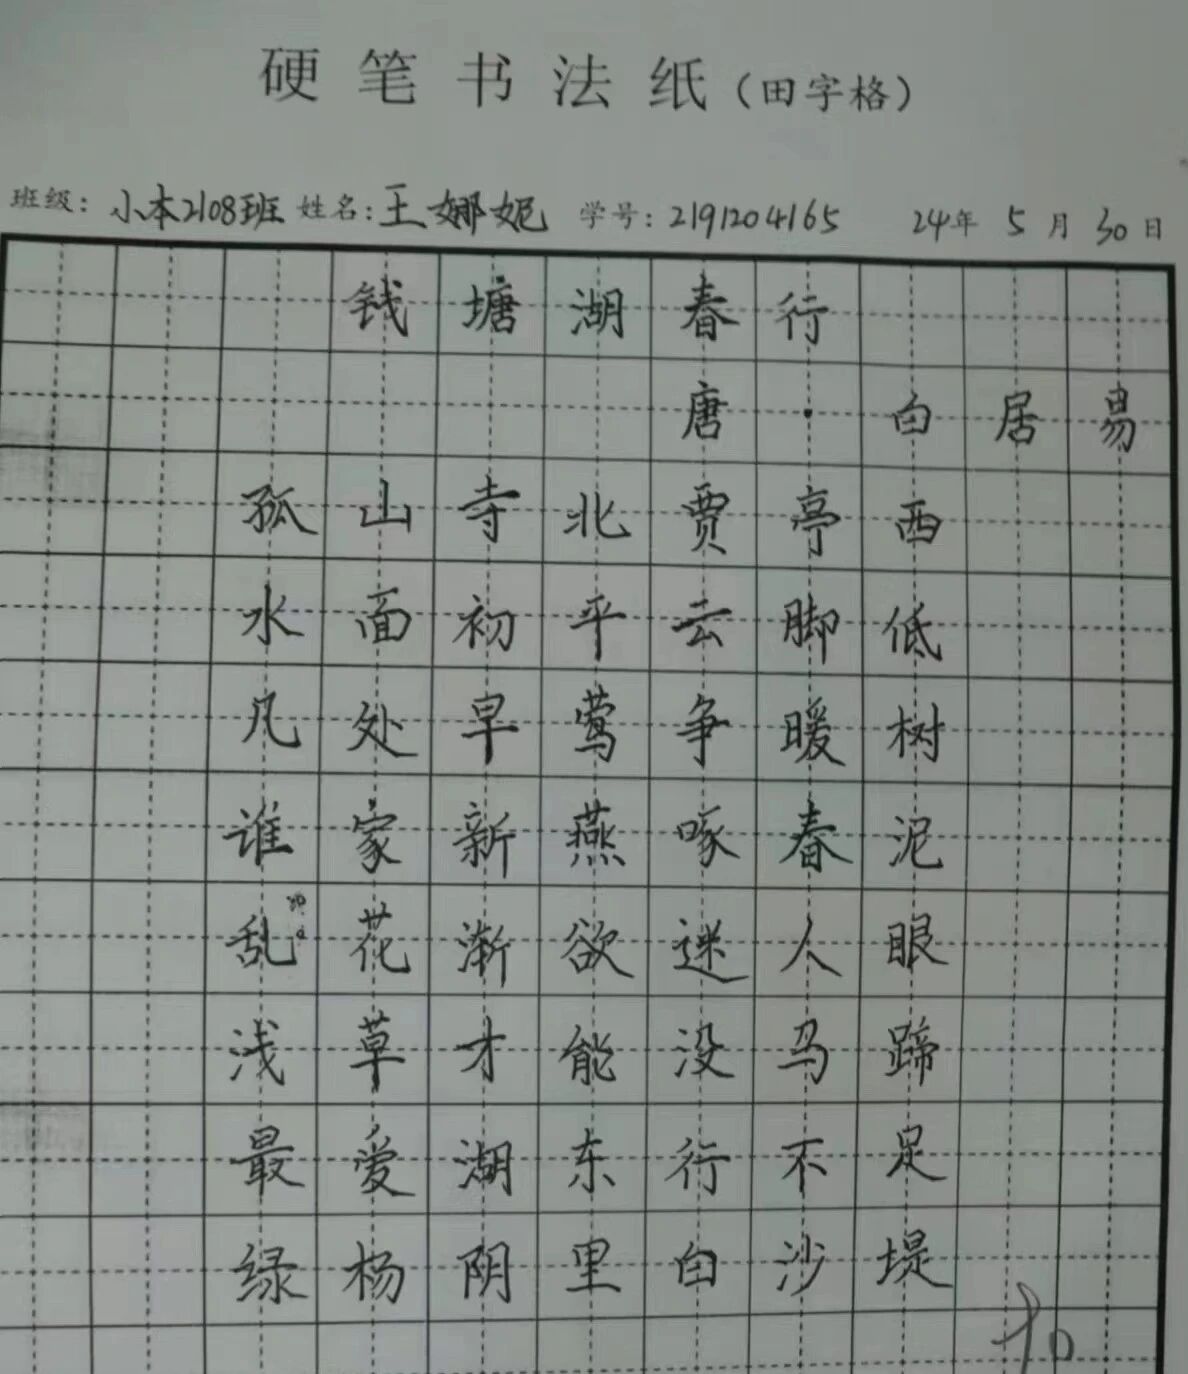 硬笔书法纸（田字格）
班级：小本2108班 姓名：王娜妮 学号：2191204165 24年5月30日
钱塘湖春行
唐·白居易
孤山寺北贾亭西
水面初平云脚低
凡处早莺争暖树
谁家新燕啄春泥
乱花渐欲迷人眼
浅草才能没马蹄
最爱湖东行不足
绿杨阴里白沙堤